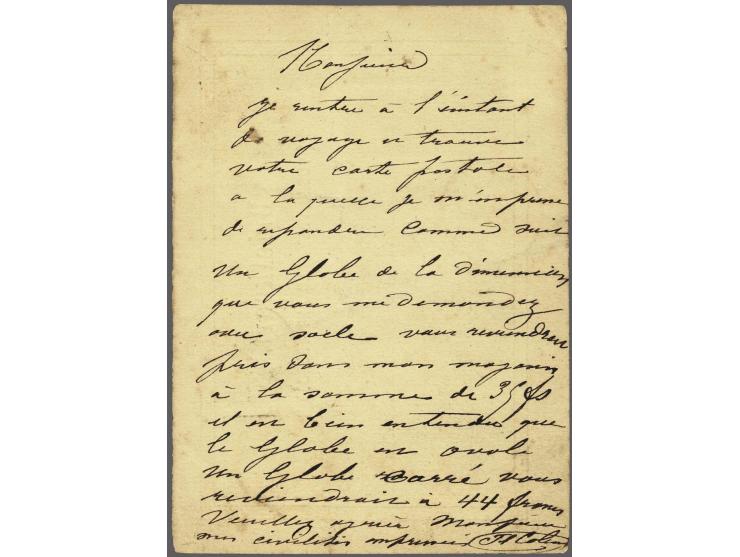 Monsieur
je rentre à l'instant
de voyage et trouve
votre carte postale
a la quelle je m'empresse
de repondre comme suit
Un Globe de la dimension
que vous me demandez
avec socle vous reviendrait
pris dans mon magasin
à la somme de 35 fs
il en bien entendu que
le Globe en ovale
Un Globe carré vous
reviendrait à 44 francs
Veuillez agréer Monsieur
mes civilités empressées